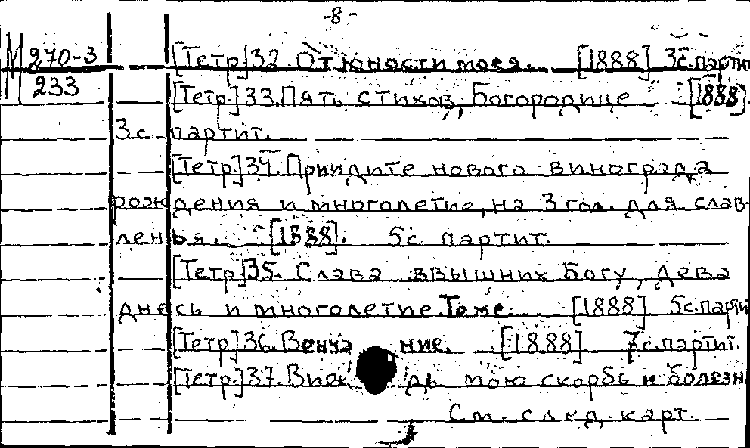 -8-
М 270-3 [Тетр]32. От юности моея. [1888] 3с. партит
233 [Тетр.]33. Пять стихов, Богородице [1888]
3с. партит.
[Тетр]34. Приидите нового винограда
рождения и многолетие, на 3 гол. для слав-
ленья. [1888]. 5с. партит.
[Тетр]35. Слава ввышних Богу, Дева
днесь и многолетие. Тоже. [1888] 5с. парти
[Тетр]36. Венча ние. [1888] 7с. партит.
[Тетр.]37. Виж дь мою скорбь и болезн
См. след. карт.